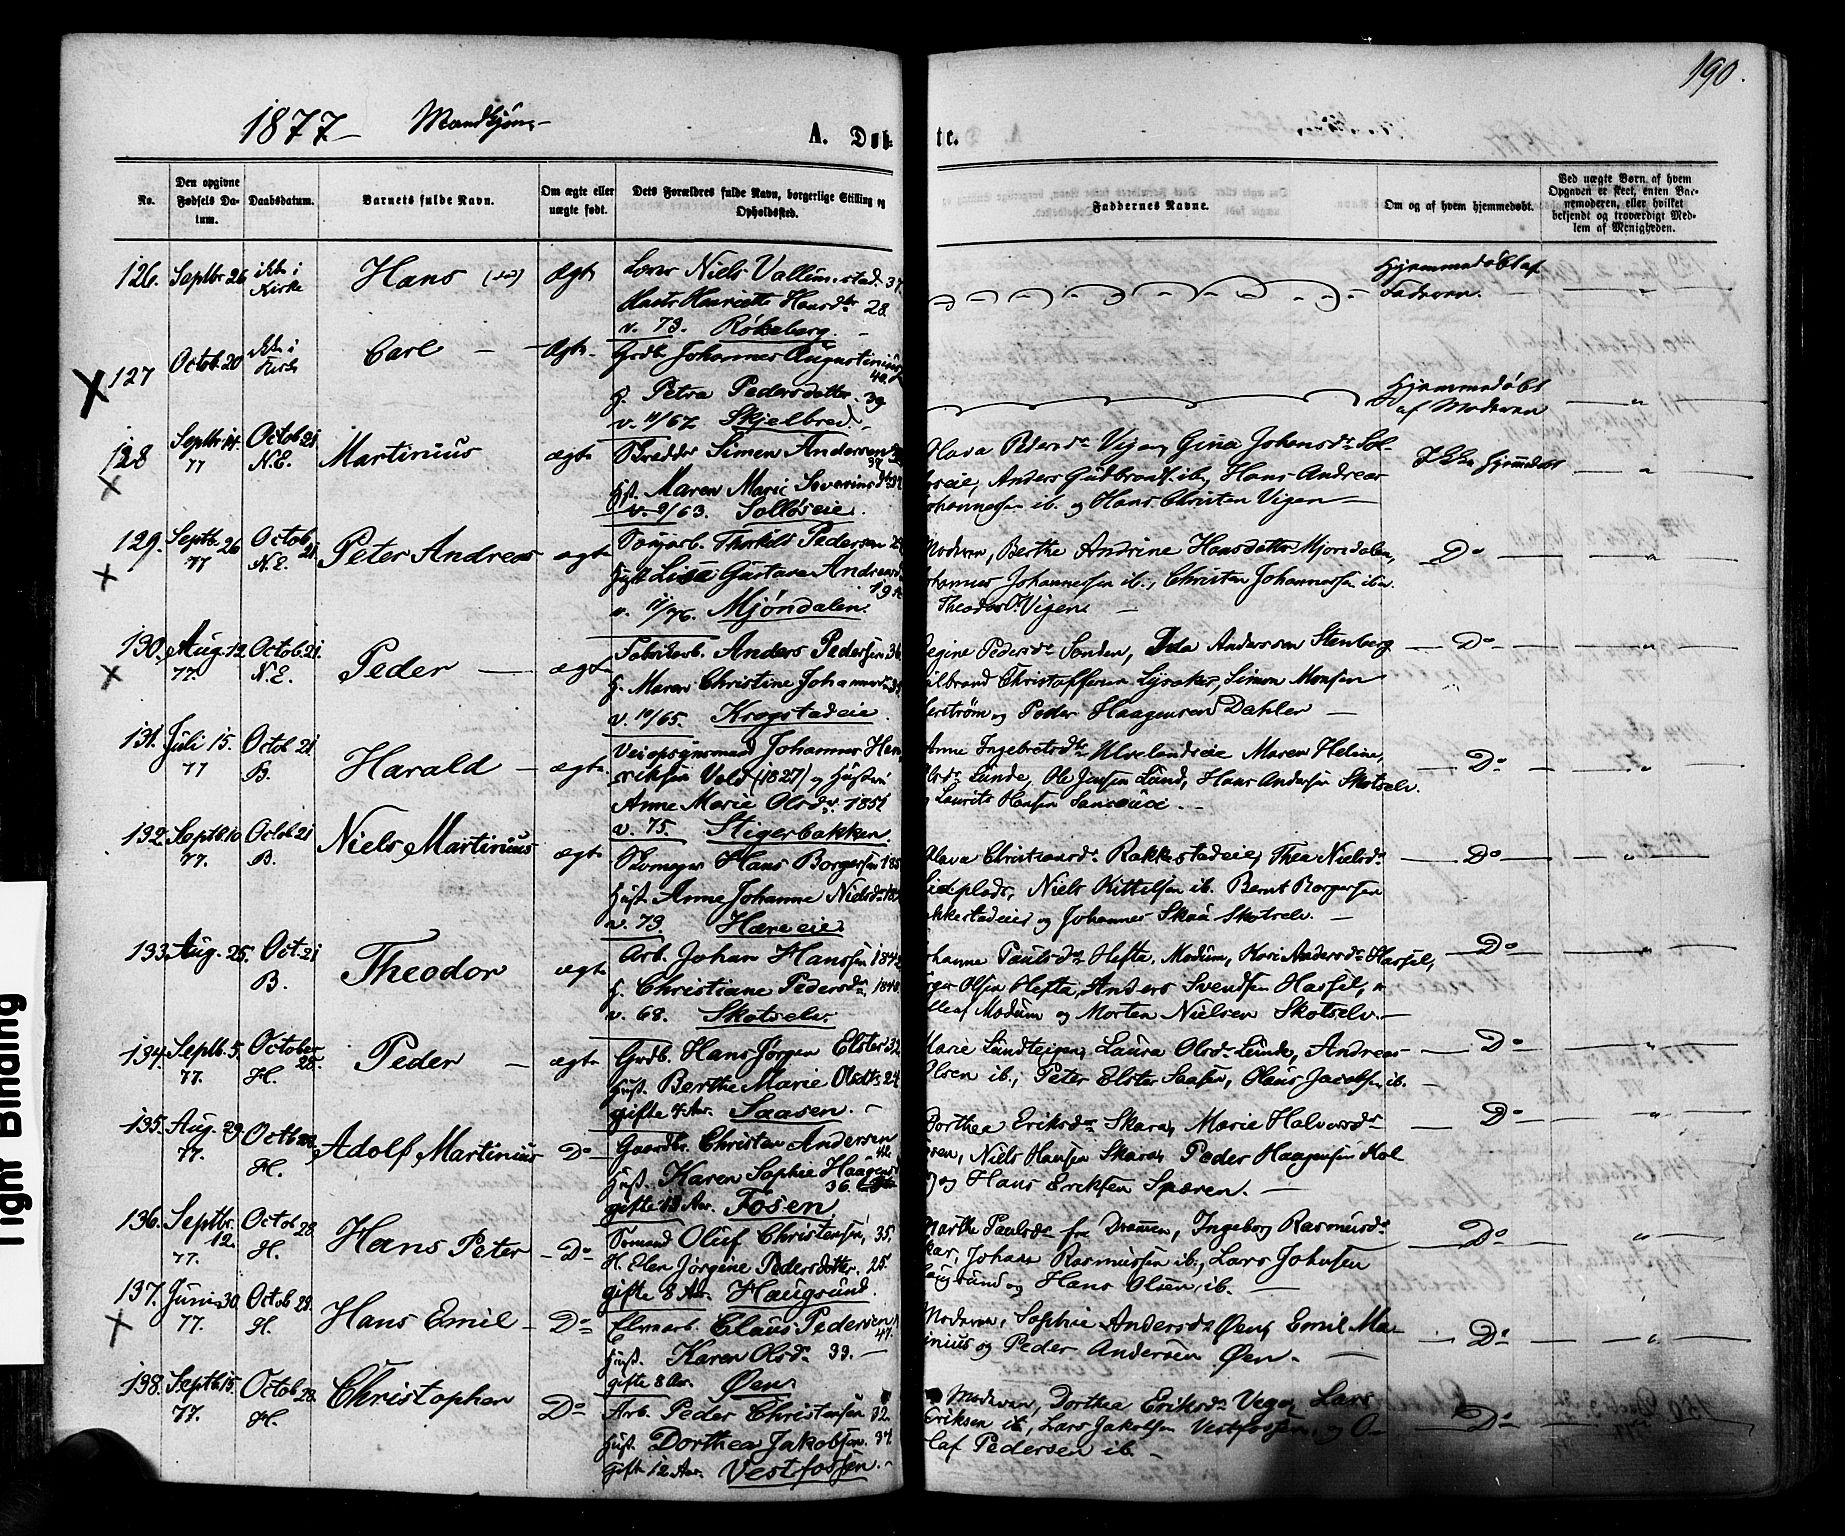 190.
1877 Mandkjøn
A. Døb-
te.
No.
Den opgivne Fødsels Datum.
Daabsdatum.
Barnets fulde Navn.
Om ægte eller uægte født.
Dets Forældres fulde Navn, borgerlige Stilling og Opholdssted.
Faddernes Navne.
Om og af hvem hjemmedøbt.
Ved uægte Børn af hvem Opgaven er skeet, enten Barnemoderen, eller hvilket bekjendt og troværdigt Medlem af Menigheden.
126. Septbr 26 ikke i Kirke Hans ægte Niels 37.
Henriette Hansdtr 28.
v. 73. Røkeberg.
Hjemmedøbt af Faderen. "
127 Octob. 20 ikke i Kirke Carl ægte Grdb. Johannes Augustinius
40.
H. Petra Pedersdatter 39
v. 11/67 Skjelbred.
Hjemmedøbt af Moderen "
128 Septbr 14. 77 Octob 21. N.E. Martinius ægte Skrædder Simen Andersen
Hust. Maren Marie Severinsdtr
v. 9/63. Solløseie.
Pedersdr Vigen, Gina Johansdr
Anders Gudbrands. ib., Hans Andreas
Johannessen ib. og Hans Christen Vigen
Ikke hjemmedøbt "
129. Septb. 26 77 Octob. 21. N.E. Peter Andreas ægte Thorkild Pedersen
Hust. Lise Gustava
19
v. 11/76. Mjøndalen.
Moderen, Berthe Andrine Hansdatter Mjøndalen,
Johannes Johannessen ib., Christen Johannessen ib. og
Theodor Vigen.
Do "
130. Aug. 12. 77. Octob. 21. N.E. Peder ægte Fabrikarb. Anders Pedersen 36
H. Maren Christine
v. 10/65. Krogstadeie.
Regine Pedersdr Sanden, Andersen Stenberg
Christoffersen Lysaker, Simon Monsen
og Peder Haagensen Dahler
Do "
131. Juli 15. 77 Octob 21 B. Harald ægte Veiopsynsmand Johannes Hen-
riksen Vold (1827) og Hustru
Anne Marie Olsdr. 1851
v. 75. Stigerbakken
Anne Ingebretsdtr Ulvelandseie Maren Heline
Olsdr Lunde, Ole Jensen Lund, Hans Andersen Skotselv
og Laurits Hansen Sanssouci.
Do "
132. Septb 10 77. Octob. 21 B. Niels Martinius ægte Hans Borgersen
Hust. Anne Johanne Nielsdr
v. 73. Hæreeie.
Olava Christiansdr Rakkestadeie, Thea Nielsdr
Lideplads, Niels Kittelsen ib. Bernt Borgersen
Rakkestadeie og Johannes Skaa Skotselv.
Do "
133. Aug. 25. Oct. 21 B. Theodor ægte Arb. Johan Hanssen
H. Christiane Pedersdr
v. 68. Skotselv.
Johanne Paulsdr Hefta, Modum, Kari Andersdr Hassel,
Olsen Hefta, Anders Svendsen Hassel,
Modum og Morten Nielsen Skotselv.
Do "
134. Septb. 5. 77. October 28. H. Peder ægte Grdb. Hans Jørgen Elster 32
Hust. Berthe Marie Olsdtr 24
gifte 4 Aar. Saasen.
Marie Lundteigen, Laura Olsdr Lunde, Andreas
Olsen ib., Peter Elster Saasen, Olaus Jacobsen ib.
Do "
135. Aug. 29. 77. Octob 28. H. Adolf Martinius Do Gaardbr. Christen Andersen
42.
Hust. Karen Sophie Haagensdr
36.
gifte 13 Aar. Fosen.
Dorthea Eriksdr Skara, Marie Halvorsdr
Niels Hansen Skara, Peder Haagensen Hol
og Hans Eriksen Spæren.
Do "
136. Septbr. 12. 77. Octob 28. H. Hans Peter Do Sømand Oluf Christensen, 35.
H. Elen Jørgine Pedersdatter, 25.
gifte 8 Aar. Haugsund.
Marthe Paulsdr fra Drammen, Ingeborg Rasmusdr
Johan Rasmussen ib., Lars Johnsen
Haugsund og Hans Olsen ib.
Do "
137. Juni 30. 77. Octob 28. H. Hans Emil Do Elvearb. Claus Pedersen
47.
Hust. Karen Olsdr 33.
gifte 8 Aar. Øen.
Moderen, Sophie Andersdr Øen, Emil Mar-
tinius og Peder Andersen Øen.
Do "
138. Septb 15. 77. Octob 28. H. Christopher Do Arb. Peder Christensen 32.
Hust. Dorthea Jakobsen. 34.
gifte 12 Aar. Vestfossen.
Moderen, Dorthea Eriksdr Vego, Lars
Eriksen ib., Lars Jakobsen Vestfossen, og O-
laf Pedersen ib.
Do "
Tight Binding